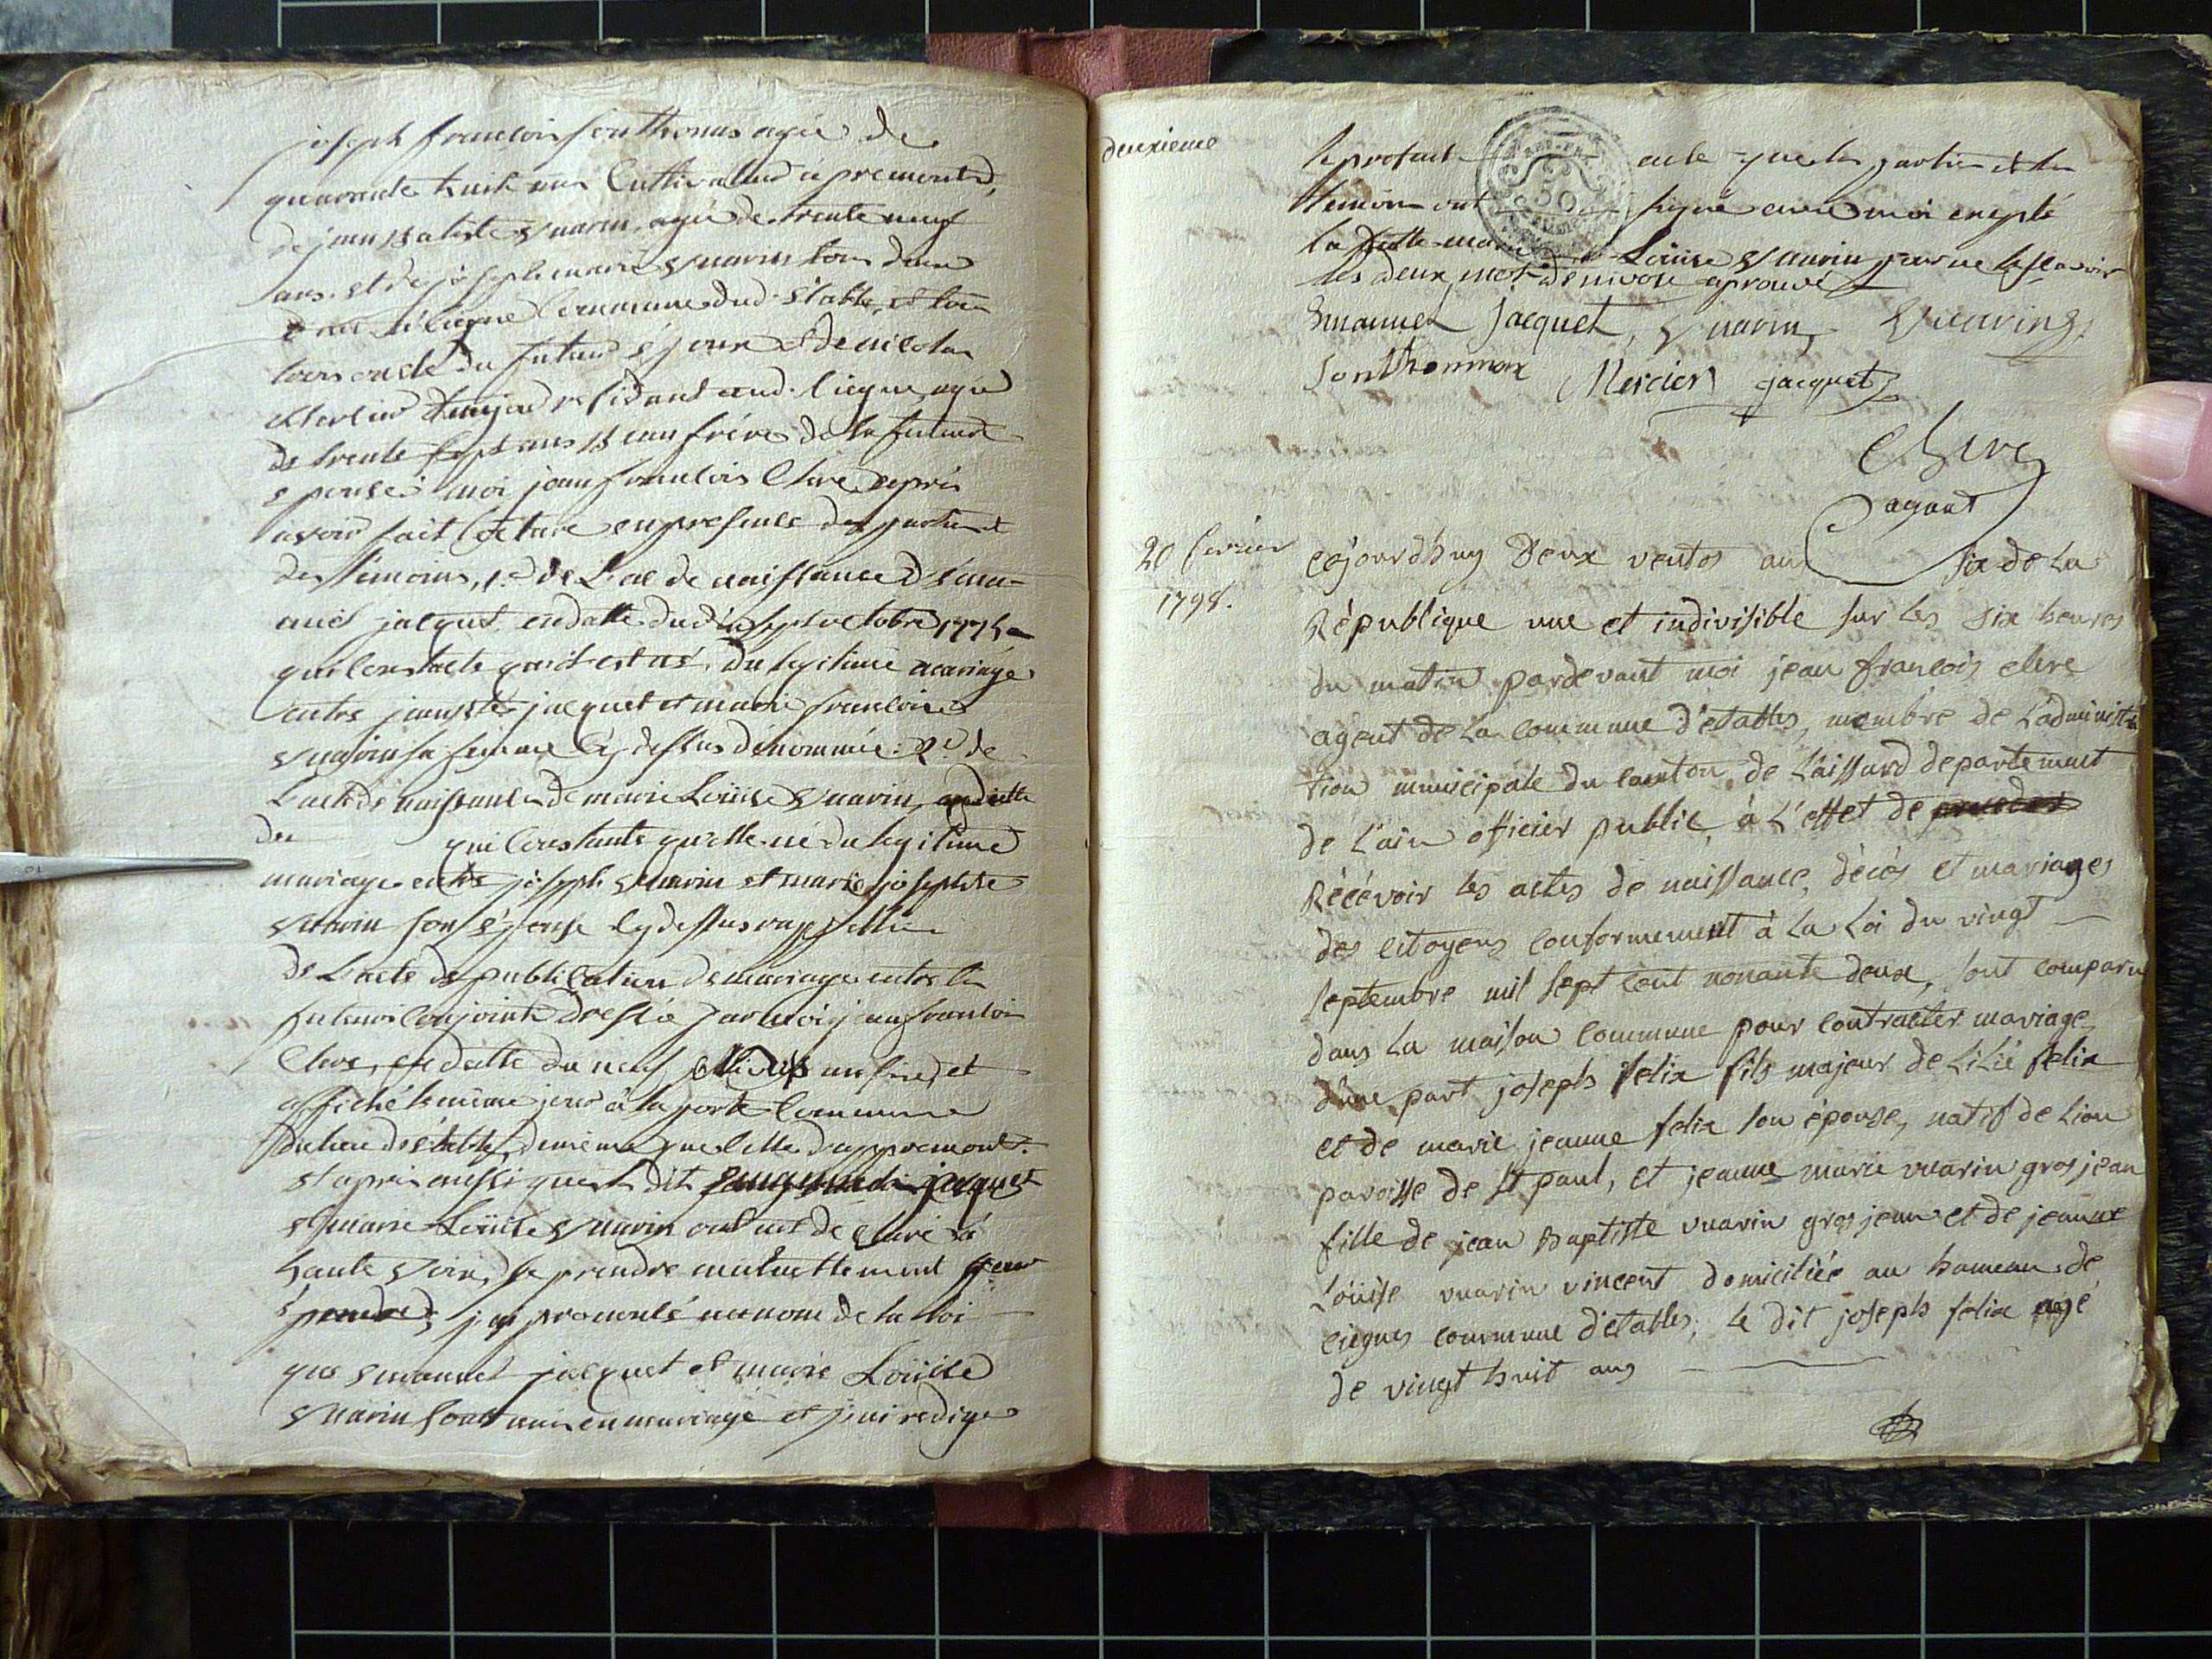 joseph francois sonthonas agée de
quarante huit ans Cultivateur à premont,
de jean Batiste Vuarin, agée de trente neuf
ans, et de joseph marie Vuarin tous deux
Ciegne Commune dud. Etable, et tous
oncle du futur Epoux et de nicolas
Mercier résidant aud. Ciegne, agé
de trente sept ans Beau frére de la future
Epouse: moi jean francois Clere aprés
avoir fait lecture en presence des parties et
des témoins, 1.º de L'ac de naissance d'éma-
nuel jacquet en datte du dixsept octobre 177
qui Constate qu'il est né du legitime mariage
entre jacquet et marie francoise
Vuarin sa femme Cy dessus dénommée. 2.º de
L'acte de naissance de marie Loüise Vuarin, en datte
du qui Constante qu'elle né du legitime
mariage entre joseph Vuarin et marie josephte
Vuarin son Epouse Cy dessus rappellée
de L'acte de publication de mariage entre les
futurs Conjoints dressée par moi jean francois
Clere, en datte du neuf an six, et
affiché le même jour à la porte Commune
du lieu d'Etable, de même que celle d'appremont.
et aprés aussi que dit jacquet
et marie Loüise Vuarin ont eut declaré à
haute Voix, se prendre mutuellement pour
Epoux, j'ai prononcé au nom de la Loi
que Emanuel jacquet et marie Loüise
Vuarin sont unis en mariage et j'ai redigé
deuxieme
le present acte que les parties et les
témoins ont signé avec moi excepté
la ditte marie Loüise Vuarin pour ne le scavoir
les deux mot de nivose aprouvé
Emanuel Jacquet, Vuarin, Vuarin
Sonthonnax Mercier jacquet
Clere
agent
20 fevrier
1798.
Cejourdhuy Deux ventos an six de La
République une et indivisible sur les six heures
du matin pardevant moi jean françois clere
agent de La Commune d'etables, membre de L'administra
tion municipale du Canton de Laissard departement
de L'ain officier public, à L'effet de proceder
Récévoir les actes de naissance, décés et mariages
des citoyens Conformement à La Loi du vingt
septembre mil sept cent nonante deux, sont comparu
dans La maison Commune pour Contracter mariage
d'une part josephs felix fils majeur de Lilié felix
et de marie jeanne felix son épouse, natif de Lion
paroisse de St paul, et jeanne marie vuarin gros jean
fille de jean Baptiste vuarin gros jean et de jeanne
Loüise vuarin vincent domiciliée au hameau de
ciegnes commune d'etables; le dit josephs felix agé
de vingt huit ans